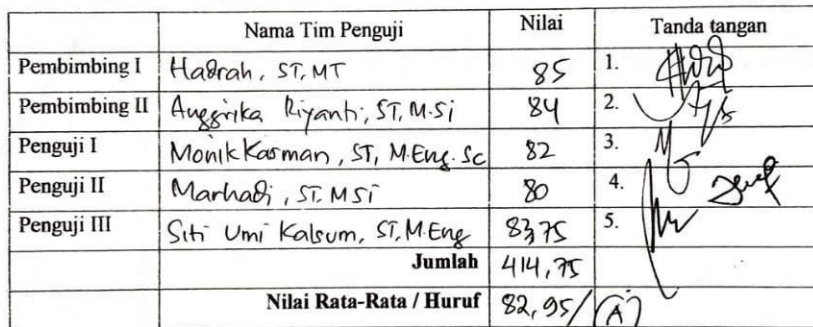 Nama Tim Penguji Nilai Tanda tangan
Pembimbing I Hadrah, ST, MT 85 1.
Pembimbing II Anggrika Riyanti, ST, M.Si 84 2.
Penguji I Monik Kasman, ST, M.Eng.Sc 82 3.
Penguji II Marhadi, ST. MSi 80 4.
Penguji III Siti Umi Kalsum, ST, M.Eng 83,75 5.
Jumlah 414,75
Nilai Rata-Rata / Huruf 82,95/ (A)